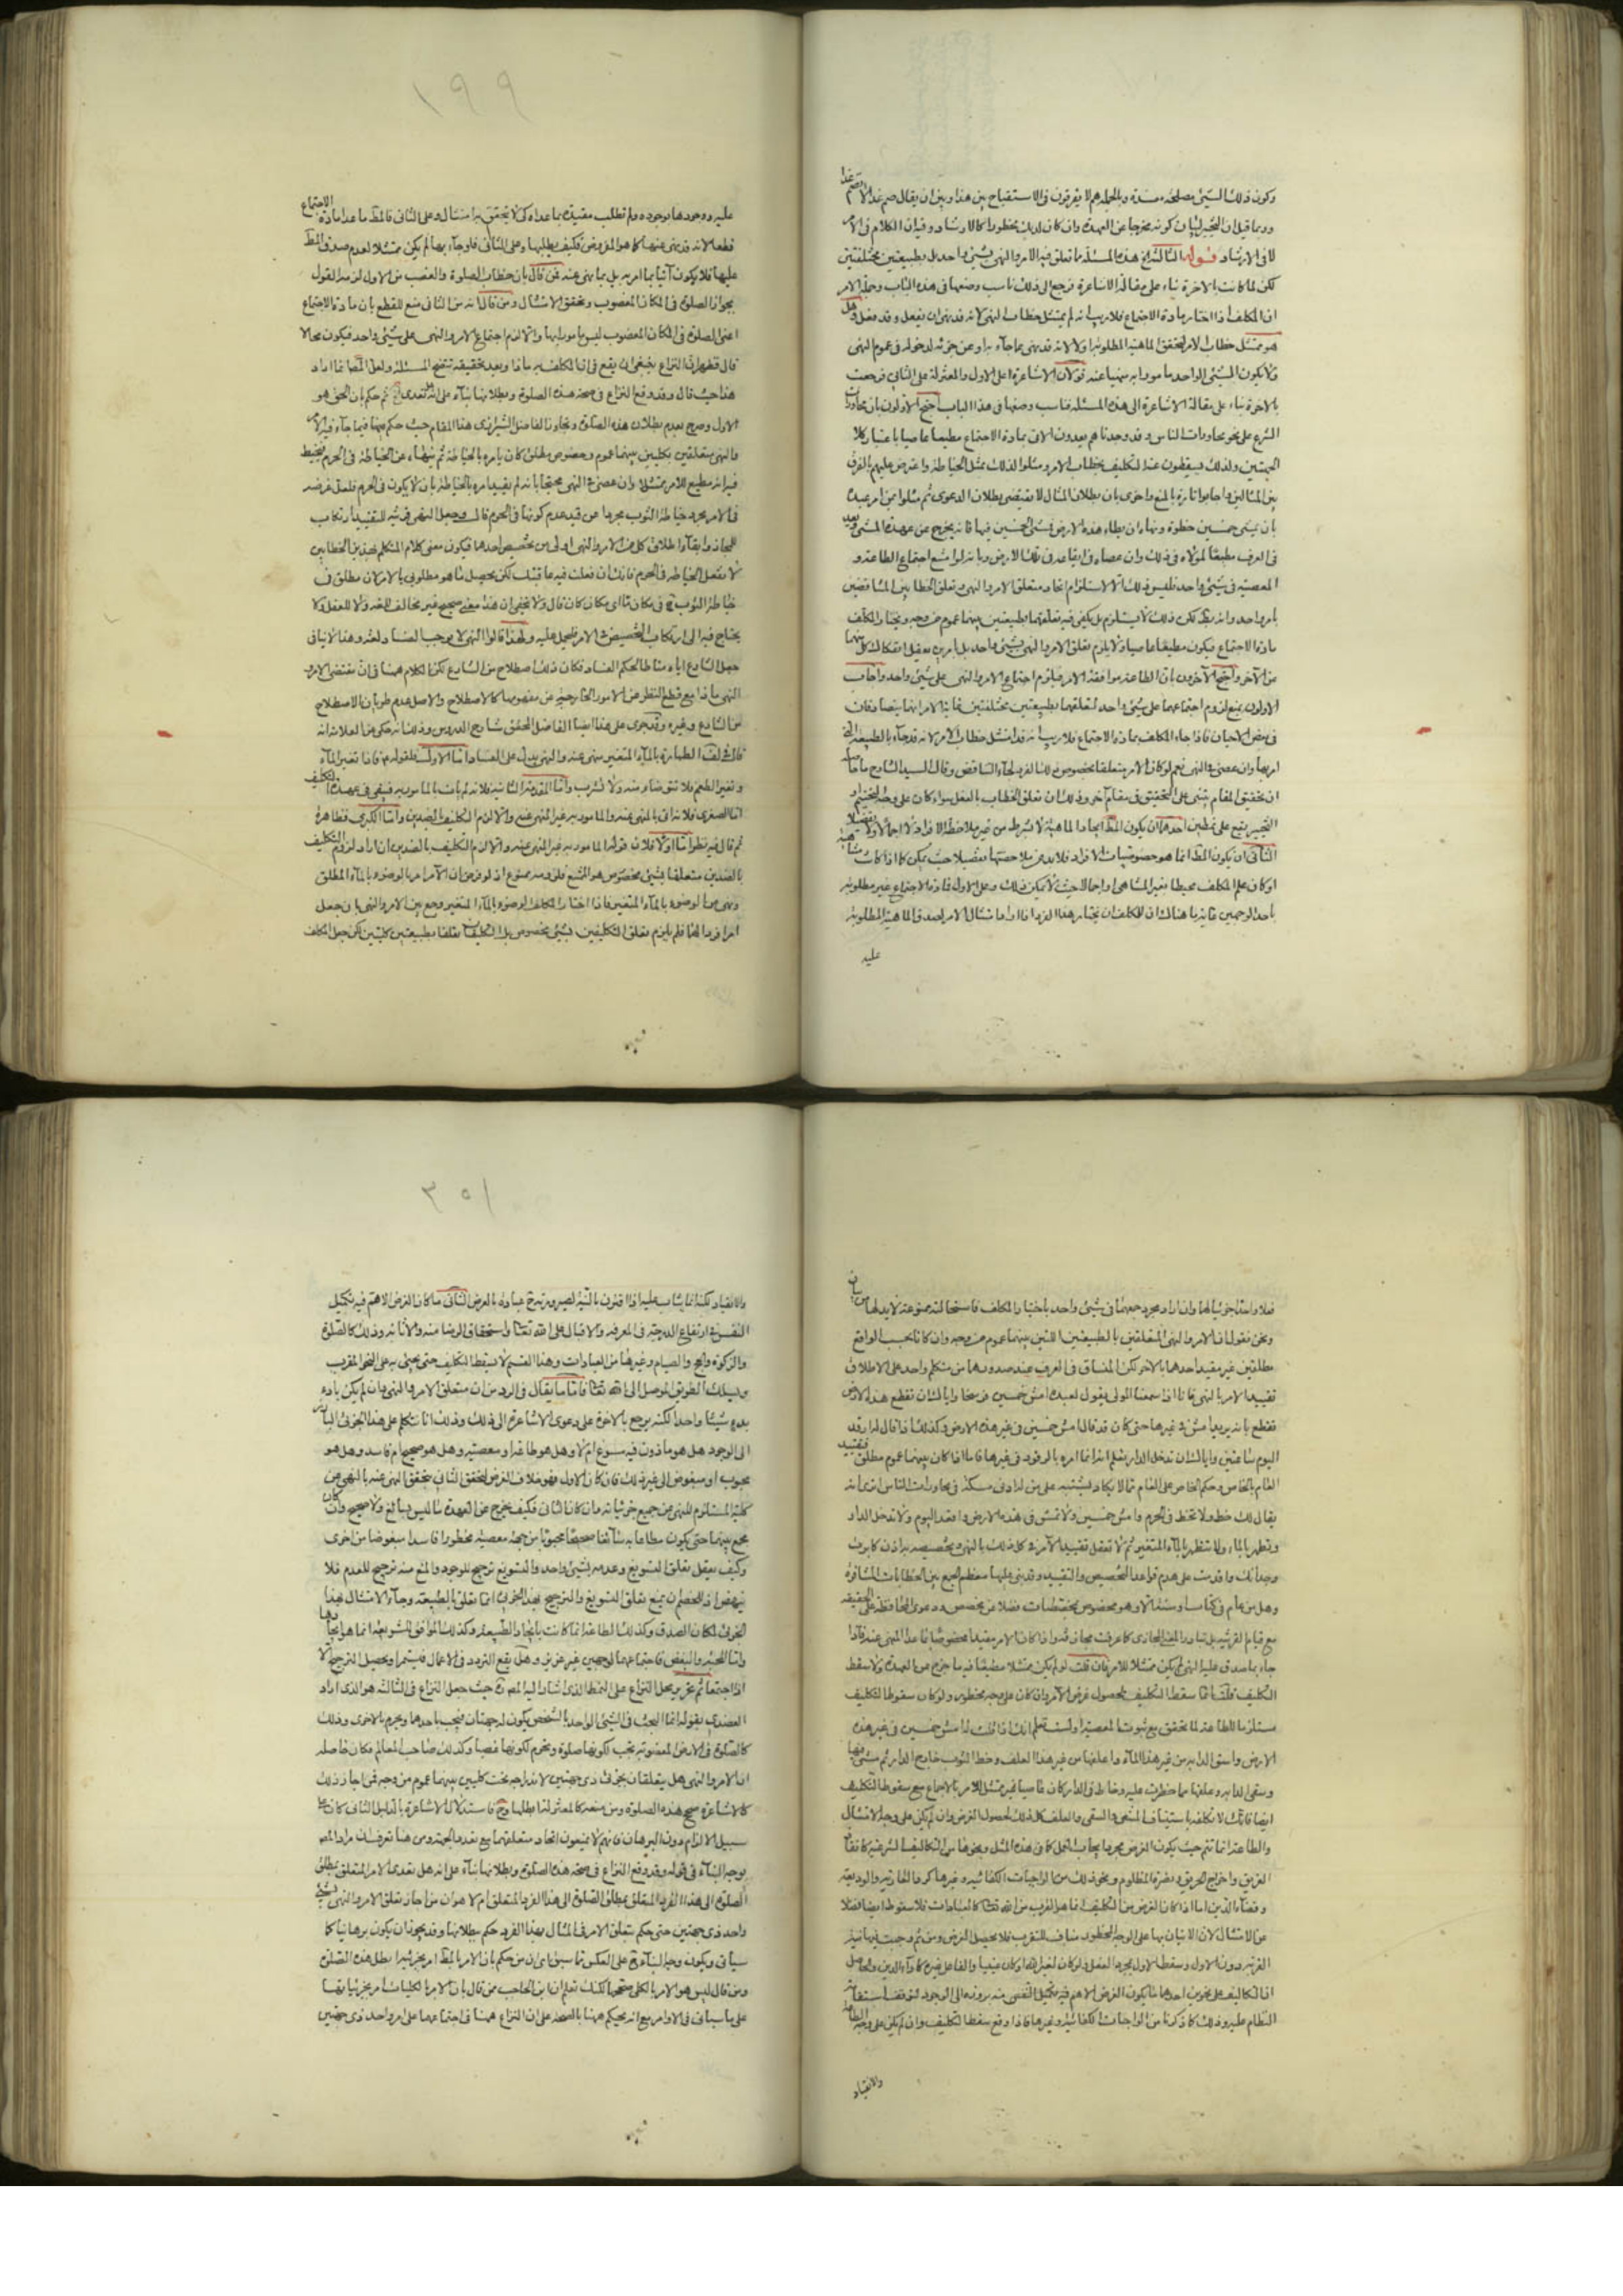 وكون ذلك الشيئ مصلحة ومفسدة وبالجملة هم لا يفرقون فى الاستقباح بين هذا وبين ان يقال صم غدا لا تصم غدا
وربما قيل ان
لا فى الارشاد قوله الثالث الخ هذه المسئلة ما تعلق فيه الامر والنهى بشيئ واحد بل بطبيعتين مختلفتين
لكن لما كانت بالاخرة بناء على مقالة الاشاعرة ترجع الى ذلك ناسب وضعها فى هذا الباب وجملة الامر
ان المكلف اذا اختار مادة الاجتماع فلا ريب انه لم يمتثل خطاب النهى لانه قد نهى ان يفعل وقد فعل وهل
هو ممتثل خطاب الامر لتحقق الماهية المطلوبة اولا لانه قد نهى عما جاء به وعن جزئه لدخوله فى عموم النهى
ولا يكون الشيئ الواحد مامورا به منهيا عنه قولان الاشاعرة على الاول والمعتزلة على الثانى فرجعت
بالاخرة بناء على مقالة الاشاعرة الى هذه المسئلة فناسب وضعها فى هذا الباب احتج الاولون بان محاورات
الشرع على نحو محاورات الناس وقد وجدناهم يعدون الاتى بمادة الاجتماع مطيعا عاصيا باعتبار كلا
الجهتين ولذلك يسقطون عنه التكليف بخطاب الامر ومثلوا لذلك بمثل الخياطة واعترض عليهم بالفرق
بين المثالين واجابوا تارة بالمنع واخرى بان بطلان المثال لا يقتضى بطلان الدعوى ثم مثلوا بمن امر عبده
بان يمشى خمسين خطوة ونهاه ان يطاء هذه الارض فمشى الخمسين فيها فانه يخرج عن عهدة المشى ويعد
فى العرف مطيعا لمولاه فى ذلك وان عصاه فى ايقاعه فى تلك الارض وبانه لو امتنع اجتماع الطاعة و
المعصية فى شيئ واحد فليس ذلك الا لاستلزام اتحاد متعلق الامر والنهى تعلق الخطابين المتناقضين
مادة الاجتماع فيكون مطيعا عاصيا ولا يلزم تعلق الامر والنهى بشيئ واحد بل بامرين يعقل انفكاك كل منهما
عن الآخر واحتج الآخرون بان الطاعة موافقة الامر فيلزم اجتماع الامر والنهى على شيئ واحد واجاب
الاولون بمنع لزوم اجتماعهما على شيئ واحد لتعلقهما بطبيعتين مختلفتين غاية الامر انهما يتصادقان
فى بعض الاحيان فاذا جاء المكلف بمادة الاجتماع فلا ريب انه قد امتثل خطاب الامر لانه قد جاء بالطبيعة التى
امر بها وان عصى فى النهى نعم لو كان الامر متعلقا بخصوص ذلك الفرد لجاء التناقض وقال السيد الشارح ما حاصله
ان تحقيق المقام يبتنى على التحقيق فى مقام آخر وذلك ان تعلق الخطاب بالفعل سواء كان على وجه التحتيم او
التخيير يقع على نمطين احدهما ان يكون المط ايجاد الماهية لا بشرط من غير ملاحظة الافراد لا اجمالا ولا تفصيلا
الثانى ان يكون المط انما هو خصوصيات الافراد فلا بد من ملاحظتها تفصيلا حيث يمكن كما اذا كانت متناهية
او كان علم المكلف محيطا بغير المتناهى واجمالا حيث لا يمكن ذلك وعلى الاول فمادة الاجتماع غير مطلوبة
باحد الوجهين غاية ما هناك ان للمكلف ان يختار هذا الفرد اذا اراد امتثال الامر لصدق الماهية المطلوبة
عليه
١٩٩
عليه ووجودها بوجوده ولم تطلب مقيدة بما عداه كى لا يتحقق به امتثال وعلى الثانى فالمط ما عدا مادة الاجتماع
قطعا لانه قد نهى عنها كما هو المفروض فكيف يطلبها وعلى الثانى فلو جاء بها لم يكن ممتثلا لعدم صدق المط
عليها فلا يكون آتيا بما امر به بل بما نهى عنه فمن قال بان خطاب الصلوة والغصب من الاول لزمه القول
بجواز الصلوة فى المكان المغصوب وتحقق الامتثال ومن قال انه من الثانى منع للقطع بان مادة الاجتماع
اعنى الصلوة فى المكان المغصوب ليس مامورا بها والا لزم اجتماع الامر والنهى على شيئ واحد فيكون محالا
قال فظهر ان النزاع ينبغى ان يقع فى ان المكلف به ماذا وبعد تحقيقه تتضح المسئلة ولعل المص انما اراد
هذا حيث قال وقد وقع النزاع فى صحة هذه الصلوة وبطلانها بناء على ثم حكم بان الحق هو
الاول وصرح بعدم بطلان هذه الصلوة الفاضل الشيرازى هذا المقام حيث حكم فيما جاء فيه الامر
والنهى متعلقين بكليين بينهما عموم وخصوص مطلق كان يامره بالخياطة ثم ينهاه عن الخياطة فى الحرم فيخيط
فيه انه مطيع للامر ممتثل وان عصى فى النهى محتجا بانه لم يقيد امره بالخياطة بان لا يكون فى الحرم فلعل غرضه
فى الامر مجرد خياطة الثوب مجردا عن قيد عدم كونها فى الحرم قال وجعل النهى قرينة للتقييد ارتكاب
للمجاز وابقاء اطلاق كل من الامر والنهى اولى من تخصيص احدهما فيكون معنى كلام المتكلم بهذين الخطابين
لا تفعل الخياطة فى الحرم فانك ان فعلت فيه عاقبتك لكن يحصل ما هو مطلوبى بالامر لان مطلق
خياطة الثوب فى مكان ما اى مكان كان قال ولا يخفى ان هذا معنى صحيح غير مخالف للغة ولا للعقل ولا
يحتاج فيه الى ارتكاب التخصيص فى الامر فليحمل عليه ولهذا قالوا النهى لا يوجب الفساد لغة وهذا لا ينافى
جعل الشارع اياه مناطا لحكم الفساد فكان ذلك اصطلاح من الشارع لكن الكلام ههنا فى ان مقتضى الامر و
النهى ماذا مع قطع النظر عن الامور الخارجية عن مفهومهما كالاصطلاح والاصل عدم طريان الاصطلاح
من الشارع وغيره وقد جرى على هذا ايضا الفاضل المحقق شارح الدروس وذلك انه حكى عن العلامة انه
قال فى لف الطهارة بالماء المتغير منهى عنه والنهى يدل على الفساد اما الاول فلقوله فاذا تغير الماء
وتغير الطعم فلا تتوضاء منه ولا تشرب واما المقدمة الثانية فلانه لم يات بالمامور به فيبقى فى عهدة التكليف
اما الصغرى فلانه اتى بالمنهى عنه والمامور به غير المنهى عنه والا لزم التكليف بالضدين واما الكبرى فظاهرة
ثم قال فيه نظر اما اولا فلان قوله المامور به غير المنهى عنه والا لزم التكليف بالضدين ان اراد لزوم التكليف
بالضدين متعلقا بشيئ مخصوص هو الممتنع فلزومه ممنوع اذ لو فرض ان الآمر امر بالوضوء بالماء المطلق
ونهى عن الوضوء بالماء المتغير فاذا اختار المكلف الوضوء بالماء المتغير وجمع بين الامر والنهى بان جعل
امرا فردا لهما فلم يلزم تعلق التكليفين بشيئ مخصوص بل التكليف تعلقا بطبيعتين كليتين لكن جعل المكلف
ونحن نقول ان الامر والنهى المتعلقين بالطبيعتين اللتين بينهما عموم من وجه وان كانا بحسب الواقع
مطلقين غير مقيد احدهما بالاخر لكن المنساق فى العرف عند صدورهما من متكلم واحد على الاطلاق
تقييد الامر بالنهى فانا اذا سمعنا المولى يقول لعبده امش خمسين فرسخا واياك ان تقطع هذه الارض
نقطع بانه يريد امش فى غيرها حتى كان قد قال امش خمسين فى غير هذه الارض وكذلك اذا قال له ارقد
اليوم ساعتين واياك ان تدخل الدار نعلم انه انما امره بالرقود فى غيرها فاما اذا كان بينهما عموم مطلق فتقييد
العام بالخاص وحكم الخاص على العام مما لا يكاد يشتبه على من له ادنى مسكة فى محاورات الناس اترى انه
يقال لك خط ولا تخط فى الحرم وامش خمسين ولا تمش فى هذه الارض وارقد اليوم ولا تدخل الدار
وتطهر بالماء ولا تتطهر بالماء المتغير ثم لا تعقل تقييد الآمر فى كل ذلك بالنهى وتخصيصه به اذن كابرت
وجدانك واقدمت على هدم قواعد التخصيص والتقييد وقد بنى عليها معظم الجمع بين الخطابات المتنافرة
وهل من عام فى كتاب او سنة الا وهو مخصوص بمخصصات فضلا عن مخصص ودعوى المحافظة على الحقيقة
جاء بما صدق عليه النهى لم يكن ممتثلا للامر فان قلت لو لم يكن ممتثلا مطيعا فبم خرج عن العهدة ولا سقط
التكليف قلت انما سقط التكليف لحصول غرض الآمر وان كان على وجه محظور ولو كان سقوط التكليف
مستلزما للطاعة لما تحقق مع ثبوت المعصية اولست تعلم انك اذا قلت له امش خمسين فى غير هذه
الارض واسق الدابة من غير هذا الماء واعلفها من غير هذا العلف وخط الثوب خارج الدار ثم مشى فيها
وسقى الدابة وعلفها مما حظرت عليه وخاط فى الدار كان عاصيا غير ممتثل للامر بالاجماع مع سقوط التكليف
ايضا فانك لا تكلفه باستيناف المشى والسقى والعلف كل ذلك لحصول الغرض وان لم يكن على وجه الامتثال
والطاعة انما تتم حيث يكون الغرض مجرد ايجاب الفعل كما فى هذه المثل ونحوها من التكاليف الشرعية كانقاذ
الغريق واخراج الحريق ونصرة المظلوم ونحو ذلك من الواجبات الكفائية وغيرها كرد العارية والوديعة
وقضاء الدين اما اذا كان الغرض من التكليف انما هو القرب من الله تعالى كالعبادات فلا سقوط ايضا فضلا
عن الامتثال لان الاتيان بها على الوجه المحظور مناف للتقرب فلا يحصل الغرض ومن ثم وجبت فيها نية
القربة دون الاول وسقط الاول بمجرد الفعل
ان التكاليف على نحوين احدهما ما يكون الغرض الاهم فيه تكميل النفس
النظام عليه وذلك كما ذكرنا من الواجبات الكفائية وغيرها فاذا وقع سقط التكليف وان لم يكن على وجه الطاعة
والانقياد
٢٠١
والانقياد لكنه انما يثاب عليه اذا اقترن بالنية لصيرورته ح عبادة بالعرض الثانى ما كان الغرض الاهم فيه تكميل
النفس فى ارتفاع الدرجة فى المعرفة والاقبال على الله تعالى واستحقاق الرضا منه والاثابة وذلك كالصلوة
والزكوة والحج والصيام وغيرها من العبادات وهذا القسم لا يسقط التكليف حتى يجيئ به على النحو المقرب
ويسلك الطريق الموصل الى الله تعالى فاما ما يقال فى الرد من ان متعلق الامر والنهى وان لم يكن بادى
بدء شيئا واحدا لكنه يرجع بالاخرة على دعوى الاشاعرة الى ذلك وذلك انا نتكلم على هذا الجزئى البارز
الى الوجود هل هو ماذون فيه مسوغ ام لا وهل هو طاعة او معصية وهل هو صحيح ام فاسد وهل هو
محبوب او مبغوض الى غير ذلك فان كان الاول فهو خلاف الفرض لتحقق الثانى بتحقق النهى عنه بالنهى عن
كلية المستلزم للنهى عن جميع جزئياته وان كان الثانى فكيف يخرج عن العهدة بما ليس بسائغ ولا صحيح
يجمع بينهما حتى يكون مطاعا به سائغا صحيحا محبوبا من جهة معصية محظورا فاسدا مبغوضا من اخرى
وكيف يعقل تعلق التسويغ وعدمه بشيئ واحد والتسويغ ترجيح للوجود والمنع منه ترجيح للعدم فلا
ينهض اذ للخصم ان يمنع تعلق التسويغ والترجيح بهذا الجزئى انما تعلق بالطبيعة وجاء الامتثال بهذا
الجزئى لمكان الصدق وكذلك الطاعة انما كانت بايجاد الطبيعة وكذلك الموافق للشريعة انما هو ايجادها
واما المحبة والبغض فاجتماعهما لوجهين غير عزيز وهل يقع التردد فى الاعمال
اذا اجتمعا ثم تحرير محل النزاع على النمط الذى اشار اليه المص ره حيث جعل النزاع فى الثالث هو الذى اراد
العضدى بقوله انما البحث فى الشيئ الواحد بالشخص يكون له جهتان فيجب باحدهما ويحرم بالاخرى وذلك
كالصلوة فى الارض المغصوبة يجب لكونها صلوة ويحرم لكونها غصبا وكذلك صاحب المعالم فكان حاصله
ان الامر والنهى هل يتعلقان بجزئى ذى جهتين لاندراجه تحت كليين بينهما عموم من وجه فمن اجاز ذلك
كالاشاعرة صحح هذه الصلوة ومن منعه كالمعتزلة ابطلها وح فاستدلال الاشاعرة بالدليل الثانى كان على
سبيل الالزام دون البرهان فانهم لا يمنعون اتحاد متعلقهما مع تعدد الجهة ومن هنا تعرف ان مراد المص
بوجه البناء فى قوله وقد وقع النزاع فى صحة هذه الصلوة وبطلانها بناء على انه هل تعدى الامر المتعلق بمطلق
الصلوة الى هذا الفرد المتعلق بمطلق الصلوة الى هذا الفرد المتعلق ام لا هو ان من اجاز تعلق الامر والنهى بشيئ
واحد ذى جهتين حتى حكم بتعلق الامر فى المثال بهذا الفرد حكم ببطلانها وقد يجوز ان يكون برهانيا كما
سياتى ويكون وجه البناء ح على العكس مما سبق
ومن قال ليس هو الامر بالكلى صححها لكنك تعلم ان ابن الحاجب ممن قال بان الامر بالكليات امر بجزئياتها
على ما سياتى فى الاوامر مع انه يحكم ههنا بالصحة على ان النزاع ههنا فى اجتماعهما على امر واحد ذى جهتين